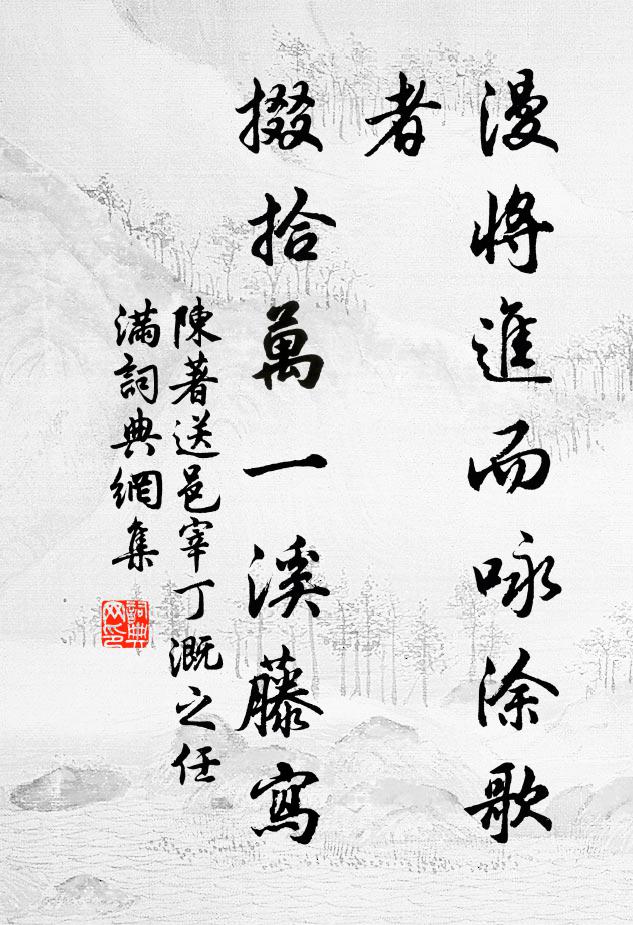 漫將進而咏涂歌
者
掇拾萬一溪藤寫
陳著送邑宰丁溉之任
滿詞典網集
詞典
网印